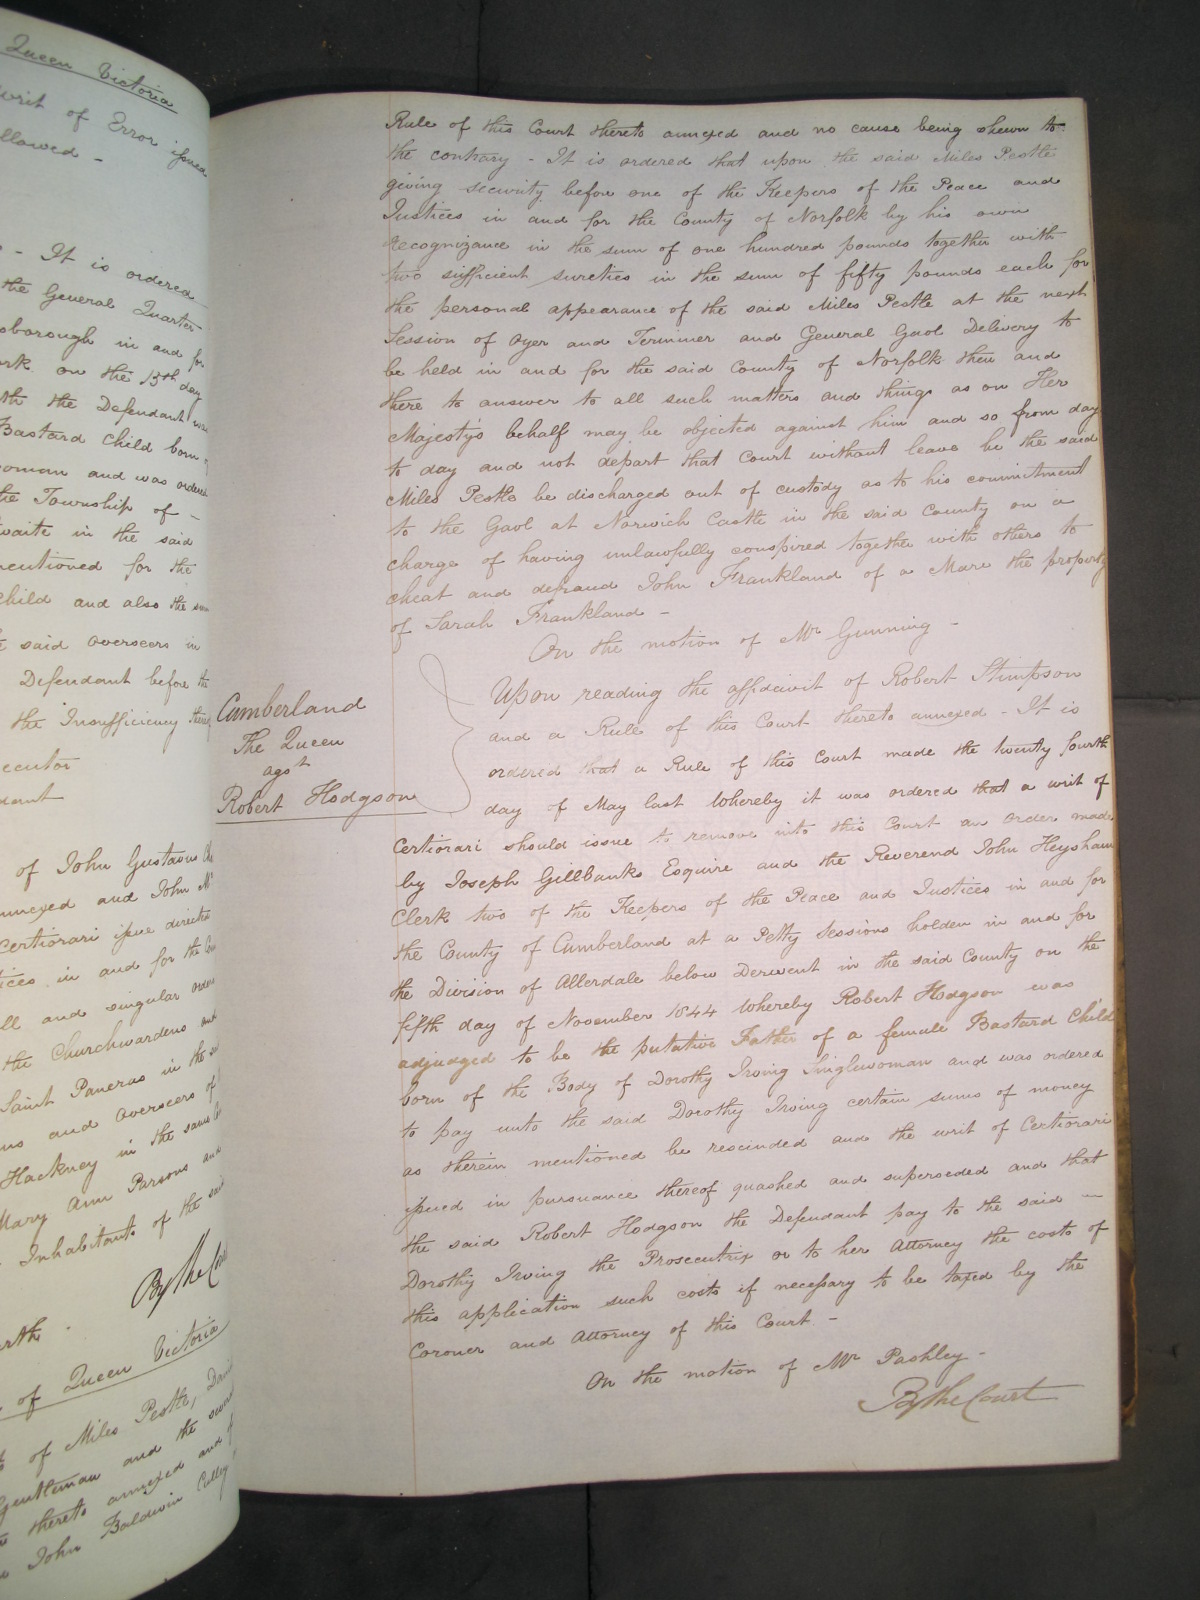 Queen Victoria
writ of Error issued
allowed -
- It is ordered
the General Quarter
in and for
on the 13th day
the Defendant was
Bastard Child born
and was ordered
the Township of -
in the said
mentioned for the
child and also the sum
said Overseers in
Defendant before the
the Insufficiency
of John Gustavus
annexed and John
Certiorari issue
in and for the
all and singular
the Churchwardens and
Saint Pancras in the
and Overseers of
Hackney in the same
Mary Ann Parsons and
Inhabitants of the said
By the Court
of Queen Victoria
of Miles Pestle,
Gentleman and the
thereto annexed and
John Baldwin
Rule of this Court thereto annexed and no cause being shewn to
the contrary - It is ordered that upon the said Miles Pestle
giving security before one of the Keepers of the Peace and
Justices in and for the County of Norfolk by his own
recognizance in the sum of one hundred pounds together with
two sufficient sureties in the sum of fifty pounds each for
the personal appearance of the said Miles Pestle at the next
Session of Oyer and Terminer and General Gaol Delivery to
be held in and for the said County of Norfolk then and
there to answer to all such matters and things as on Her
Majestys behalf may be objected against him and so from day
to day and not depart that Court without leave he the said
Miles Pestle be discharged out of custody as to his commitment
to the Gaol at Norwich Castle in the said County on a
charge of having unlawfully conspired together with others to
cheat and defraud John Frankland of a Mare the property
of Sarah Frankland -
On the motion of Mr Gunning -
Cumberland
The Queen
agst
Robert Hodgson
Upon reading the affidavit of Robert Stimpson
and a Rule of this Court thereto annexed - It is
ordered that a Rule of this Court made the twenty fourth
day of May last Whereby it was ordered that a writ of
Certiorari should issue to remove into this Court an order made
by Joseph Gillbanks Esquire and the Reverend John Heysham
Clerk two of the Keepers of the Peace and Justices in and for
the County of Cumberland at a Petty Sessions holden in and for
the Division of Allerdale below Derwent in the said County on the
fifth day of November 1844 Whereby Robert Hodgson was
adjudged to be the putative Father of a female Bastard Child
born of the Body of Dorothy Irving Singlewoman and was ordered
to pay unto the said Dorothy Irving certain sums of money
as therein mentioned be rescinded and the writ of Certiorari
issued in pursuance thereof quashed and superseded and that
the said Robert Hodgson the Defendant pay to the said -
Dorothy Irving the Prosecutrix or to her Attorney the costs of
this application such costs if necessary to be taxed by the
Coroner and Attorney of this Court -
On the motion of Mr Pashley -
By the Court